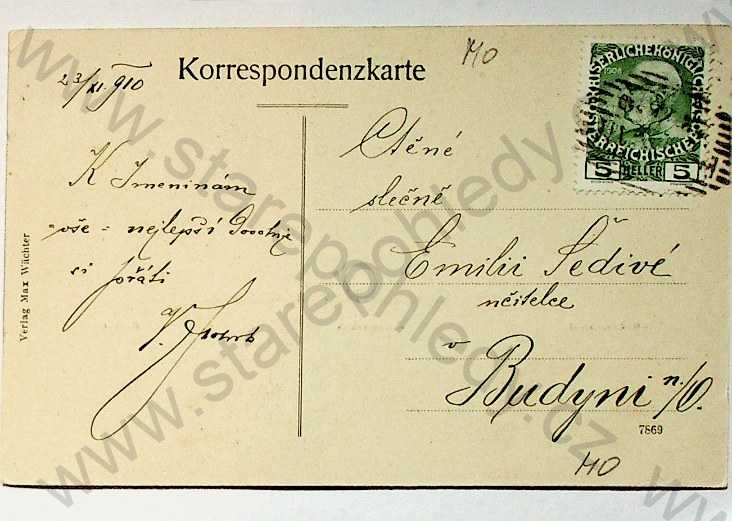 23/XI. 910
Korrespondenzkarte
MO
K Jmeninám
vše nejlepší
si přáti
Verlag Max Wächter
Ctěné
slečně
Emilii Šedivé
učitelce
v
Budyni n/O.
7869
MO
KAISERLICHE KÖNIGLICHE
ÖSTERREICHISCHE
1908
5 HELLER 5
www.starepohledy.cz
www.starepohledy.cz